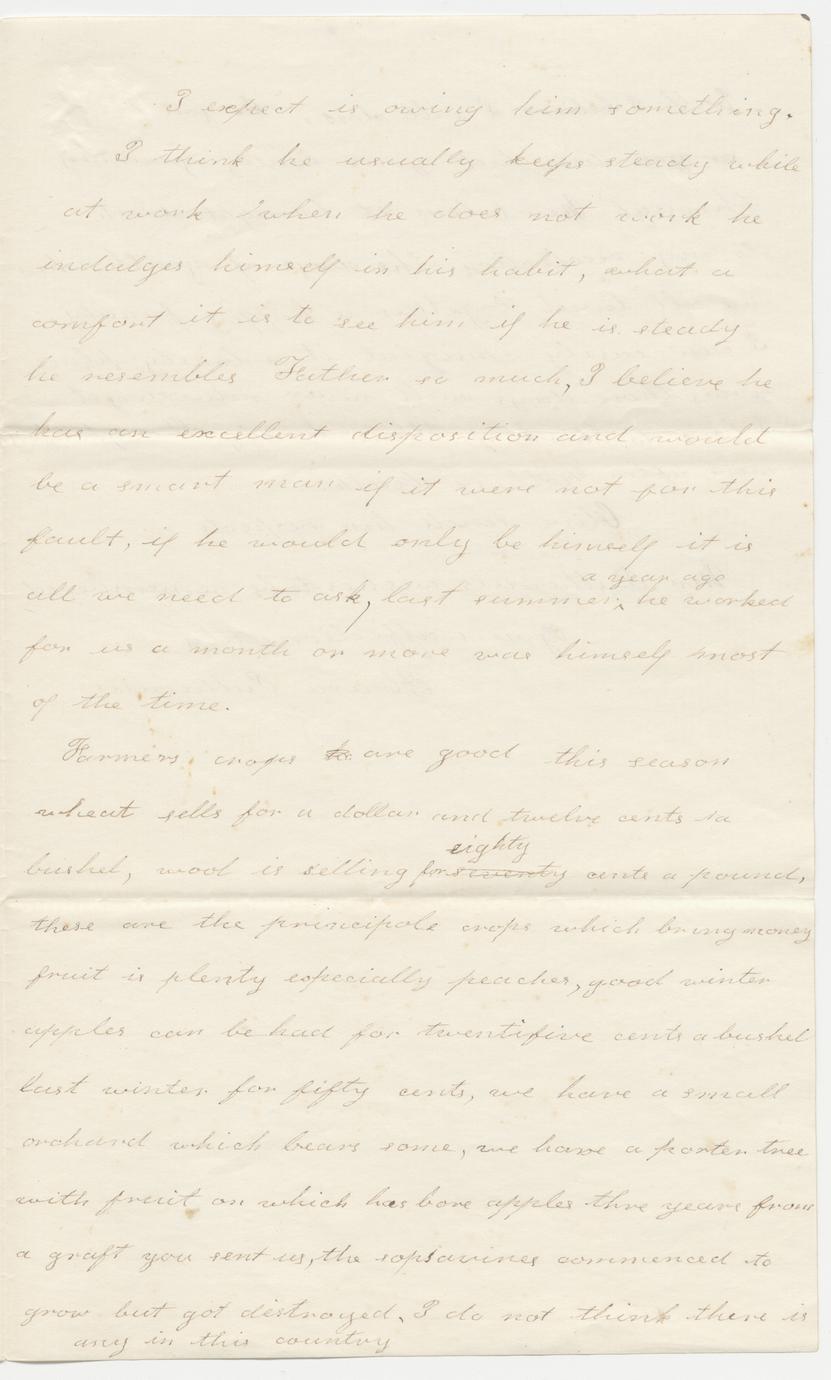 I expect is owing him something.
I think he usually keeps steady while
at work when he does not work he
indulges himself in his habit, what a
comfort it is to see him if he is steady
he resembles Father so much, I believe he
has an excellent disposition and would
be a smart man if it were not for this
fault, if he would only be himself it is
a year ago
all we need to ask, last summer, he worked
for us a month or more was himself most
of the time.
Farmers crops are good this season
wheat sells for a dollar and twelve cents a
eighty
bushel, wool is selling for seventy cents a pound,
these are the principole crops which bring money
fruit is plenty especially peaches, good winter
apples can be had for twentifive cents a bushel
last winter for fifty cents, we have a small
orchard which bears some, we have a porter tree
with fruit on which has bore apples thre years from
a graft you sent us, the sopsavines commenced to
grow but got destroyed, I do not think there is
any in this country